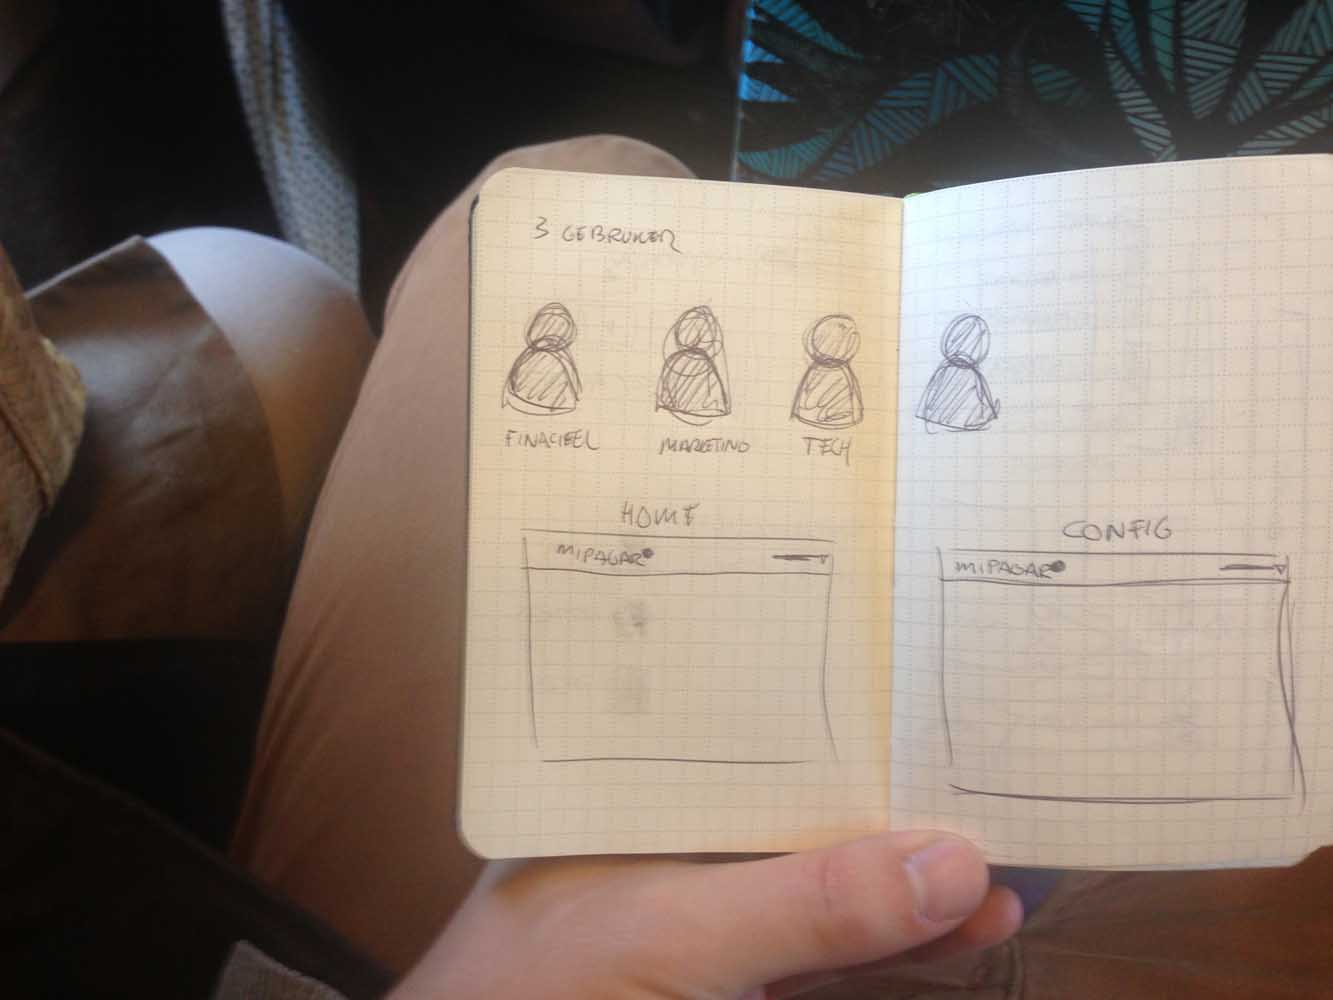 3 GEBRUIKER
FINACIEEL
MARKETING
TECH
HOME
MIPAGAR
CONFIG
MIPAGAR